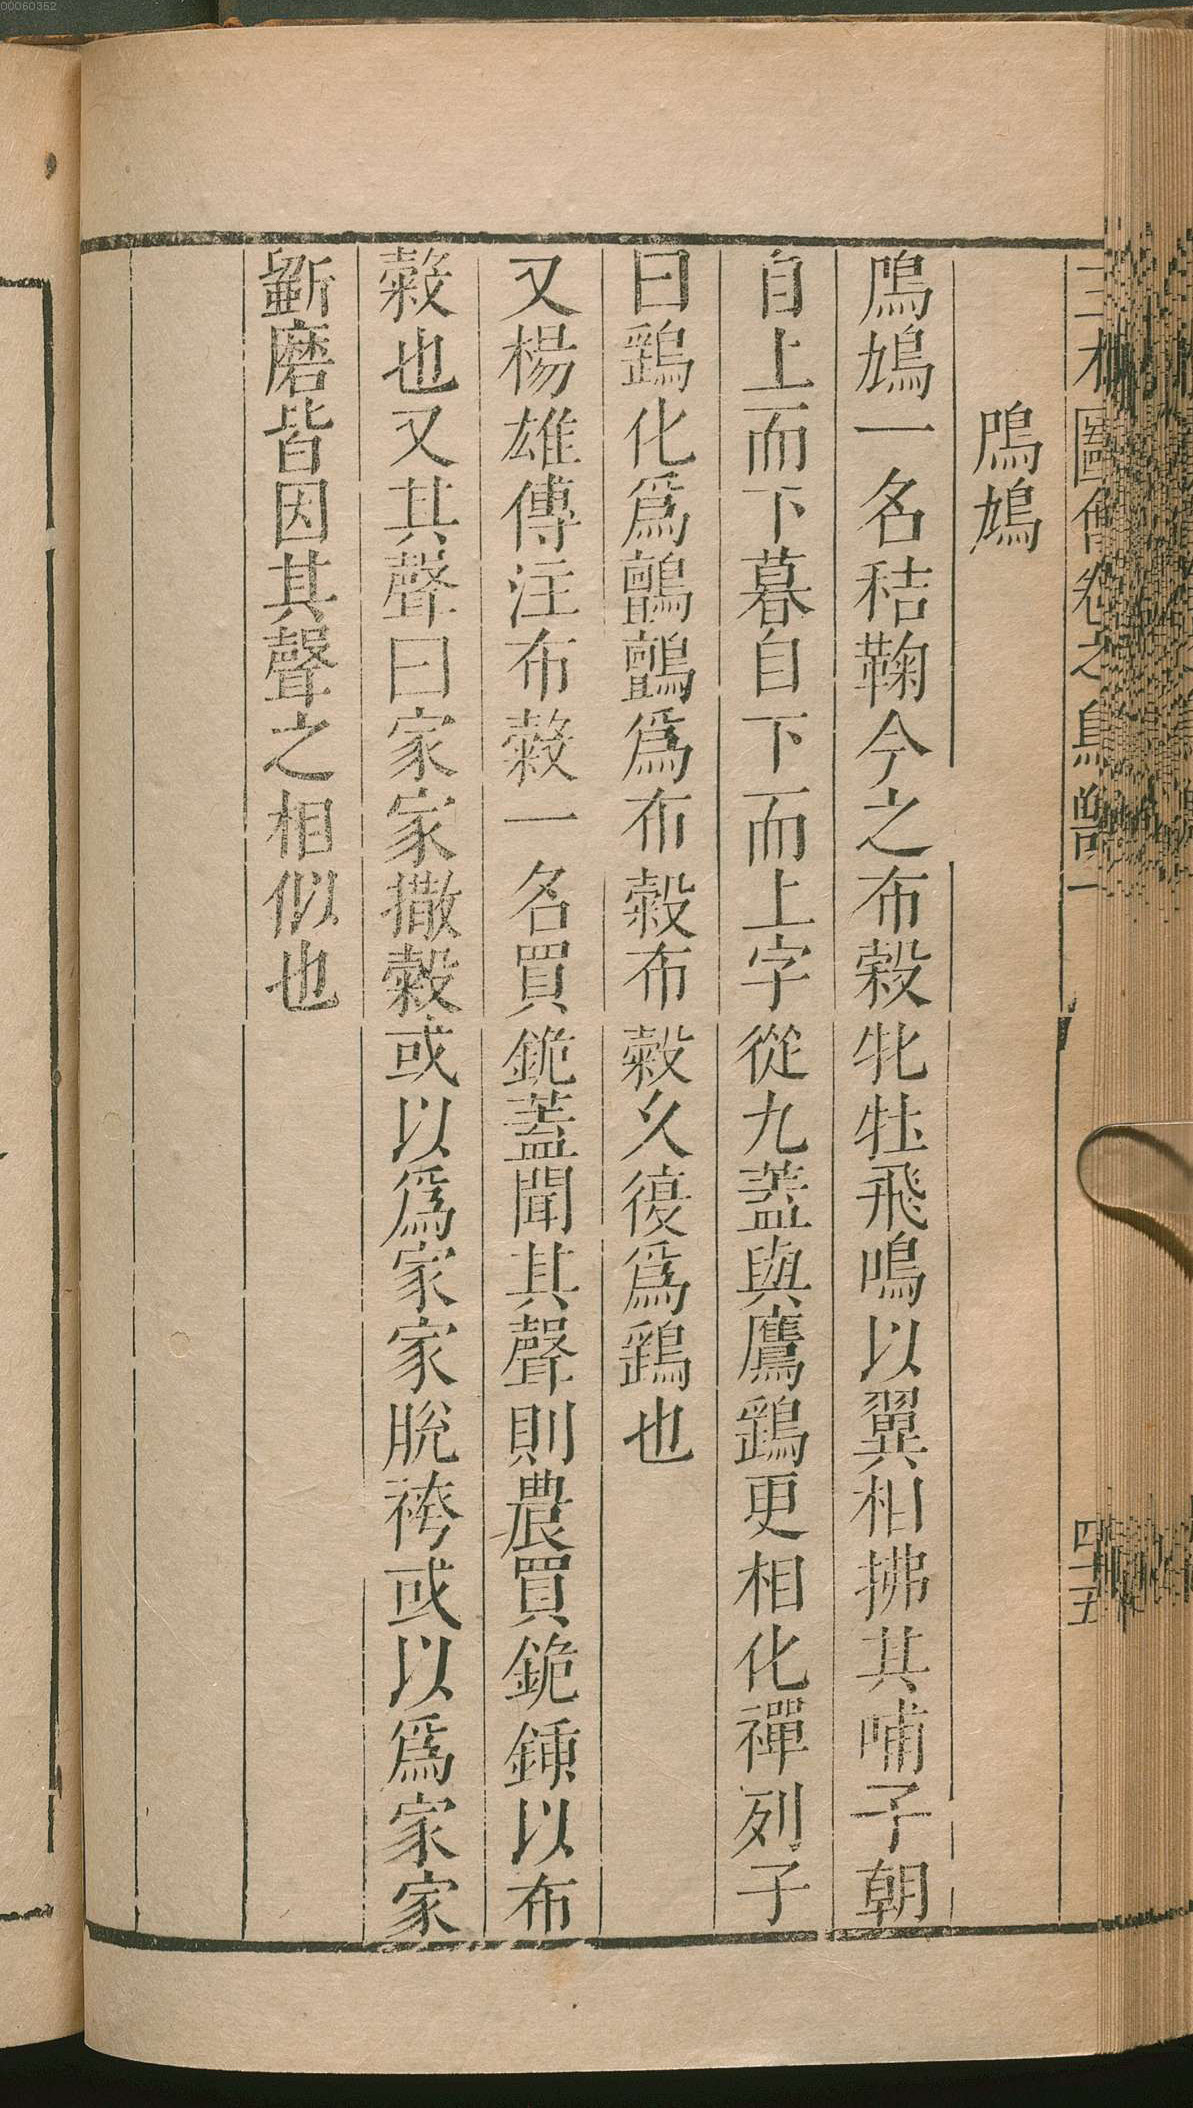 00060352
三才圖會卷之鳥獸一
四十五
鳲鳩
鳲鳩一名秸鞠今之布穀牝牡飛鳴以翼相拂其哺子朝
自上而下暮自下而上字從九蓋與鷹鷂更相化禪列子
曰鷂化爲鸇鸇爲布穀布穀久復爲鷂也
又楊雄傳注布穀一名買䤥蓋聞其聲則農買䤥鍤以布
穀也又其聲曰家家撒穀或以爲家家脫袴或以爲家家
斲磨皆因其聲之相似也